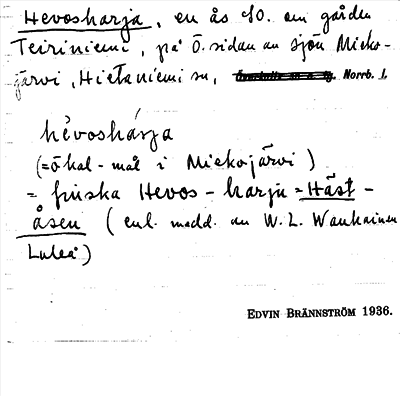 Hevosharja, en ås SO. om gården
Teiriniemi, på Ö. sidan av sjön Mieko-
järvi, Hietaniemi sn, Norrb. l.
hevoshárja
(= Ö kal - mål i Miekojärvi)
= finska Hevos - harju = Häst -
åsen ( enl. medd. av W. L. Wanhainen
Luleå)
EDVIN BRÄNNSTRÖM 1936.